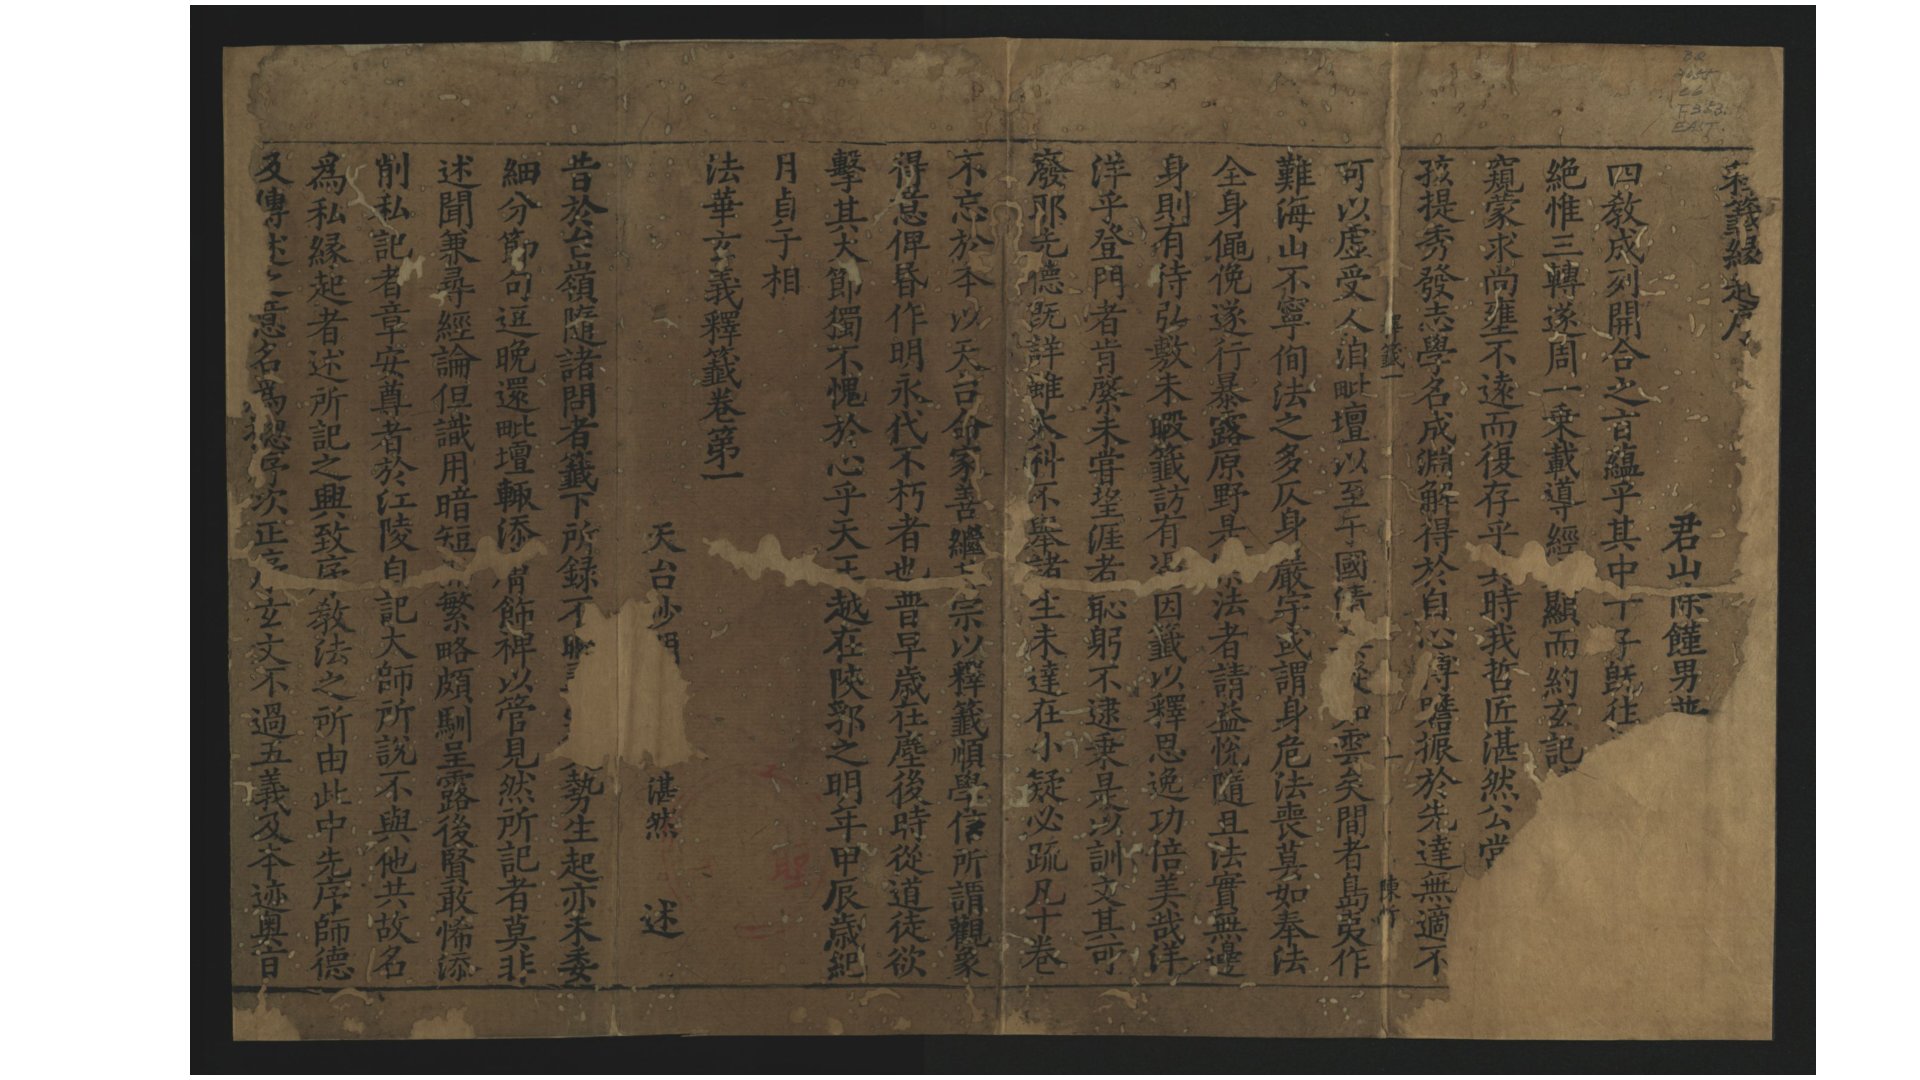 釋籤緣起序
君山 饉男
四教成列開合之言蘊乎其中 子既往
絶惟三轉遂周一乗載導經 顯而約玄記
窺蒙求尚壅不遠而復存乎 時我哲匠湛然公當
孩提秀發志學名成淵解得於自心 振於先達無適不
可以虛受人洎毗壇以至于國 雲矣間者島夷作
難海山不寧徇法之多仄身 嚴宇或謂身危法喪莫如奉法
全身僶俛遂行暴露原野是 法者請益悅隨且法實無邊
身則有待弘敷未暇籤訪有 因籤以釋思逸功倍美哉洋
洋乎登門者肯綮未嘗望涯者恥躬不逮秉是以訓文其可
廢耶先德既詳雖 科不舉諸生未達在小疑必疏凡十卷
不忘於本以天台命家善繼 宗以釋籤順學信所謂觀象
得意俾昏作明永代不朽者也普早歲在塵後時從道徒欲
擊其大節獨不愧於心乎天王越在陝郛之明年甲辰歲紀
月貞于相
法華玄義釋籤卷第一
天台沙門 湛然 述
昔於台嶺隨諸問者籤下所録不 勢生起亦未委
細分節句逗晚還毗壇輙添 飾裨以管見然所記者莫非
述聞兼尋經論但識用暗短 繁略頗馴呈露後賢敢悕添
削私記者章安尊者於江陵自記大師所說不與他共故名
爲私緣起者述所記之興致序 教法之所由此中先序師德
及傳述之意名爲 序次正序 玄文不過五義及本迹奥旨
籤一
一
陳
BQ
E333
EAST.